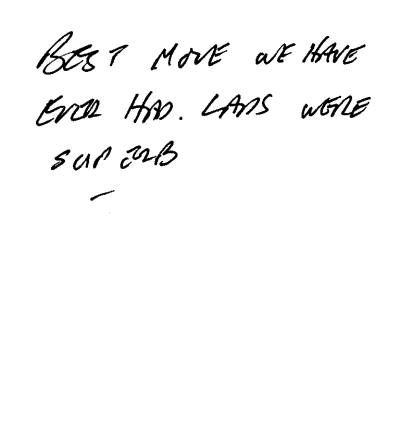 BEST MOVE WE HAVE
EVER HAD. LADS WERE
SUPERB